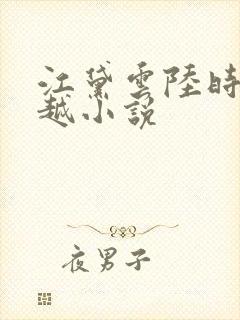 江黛雲陸時
越小說
夜男子